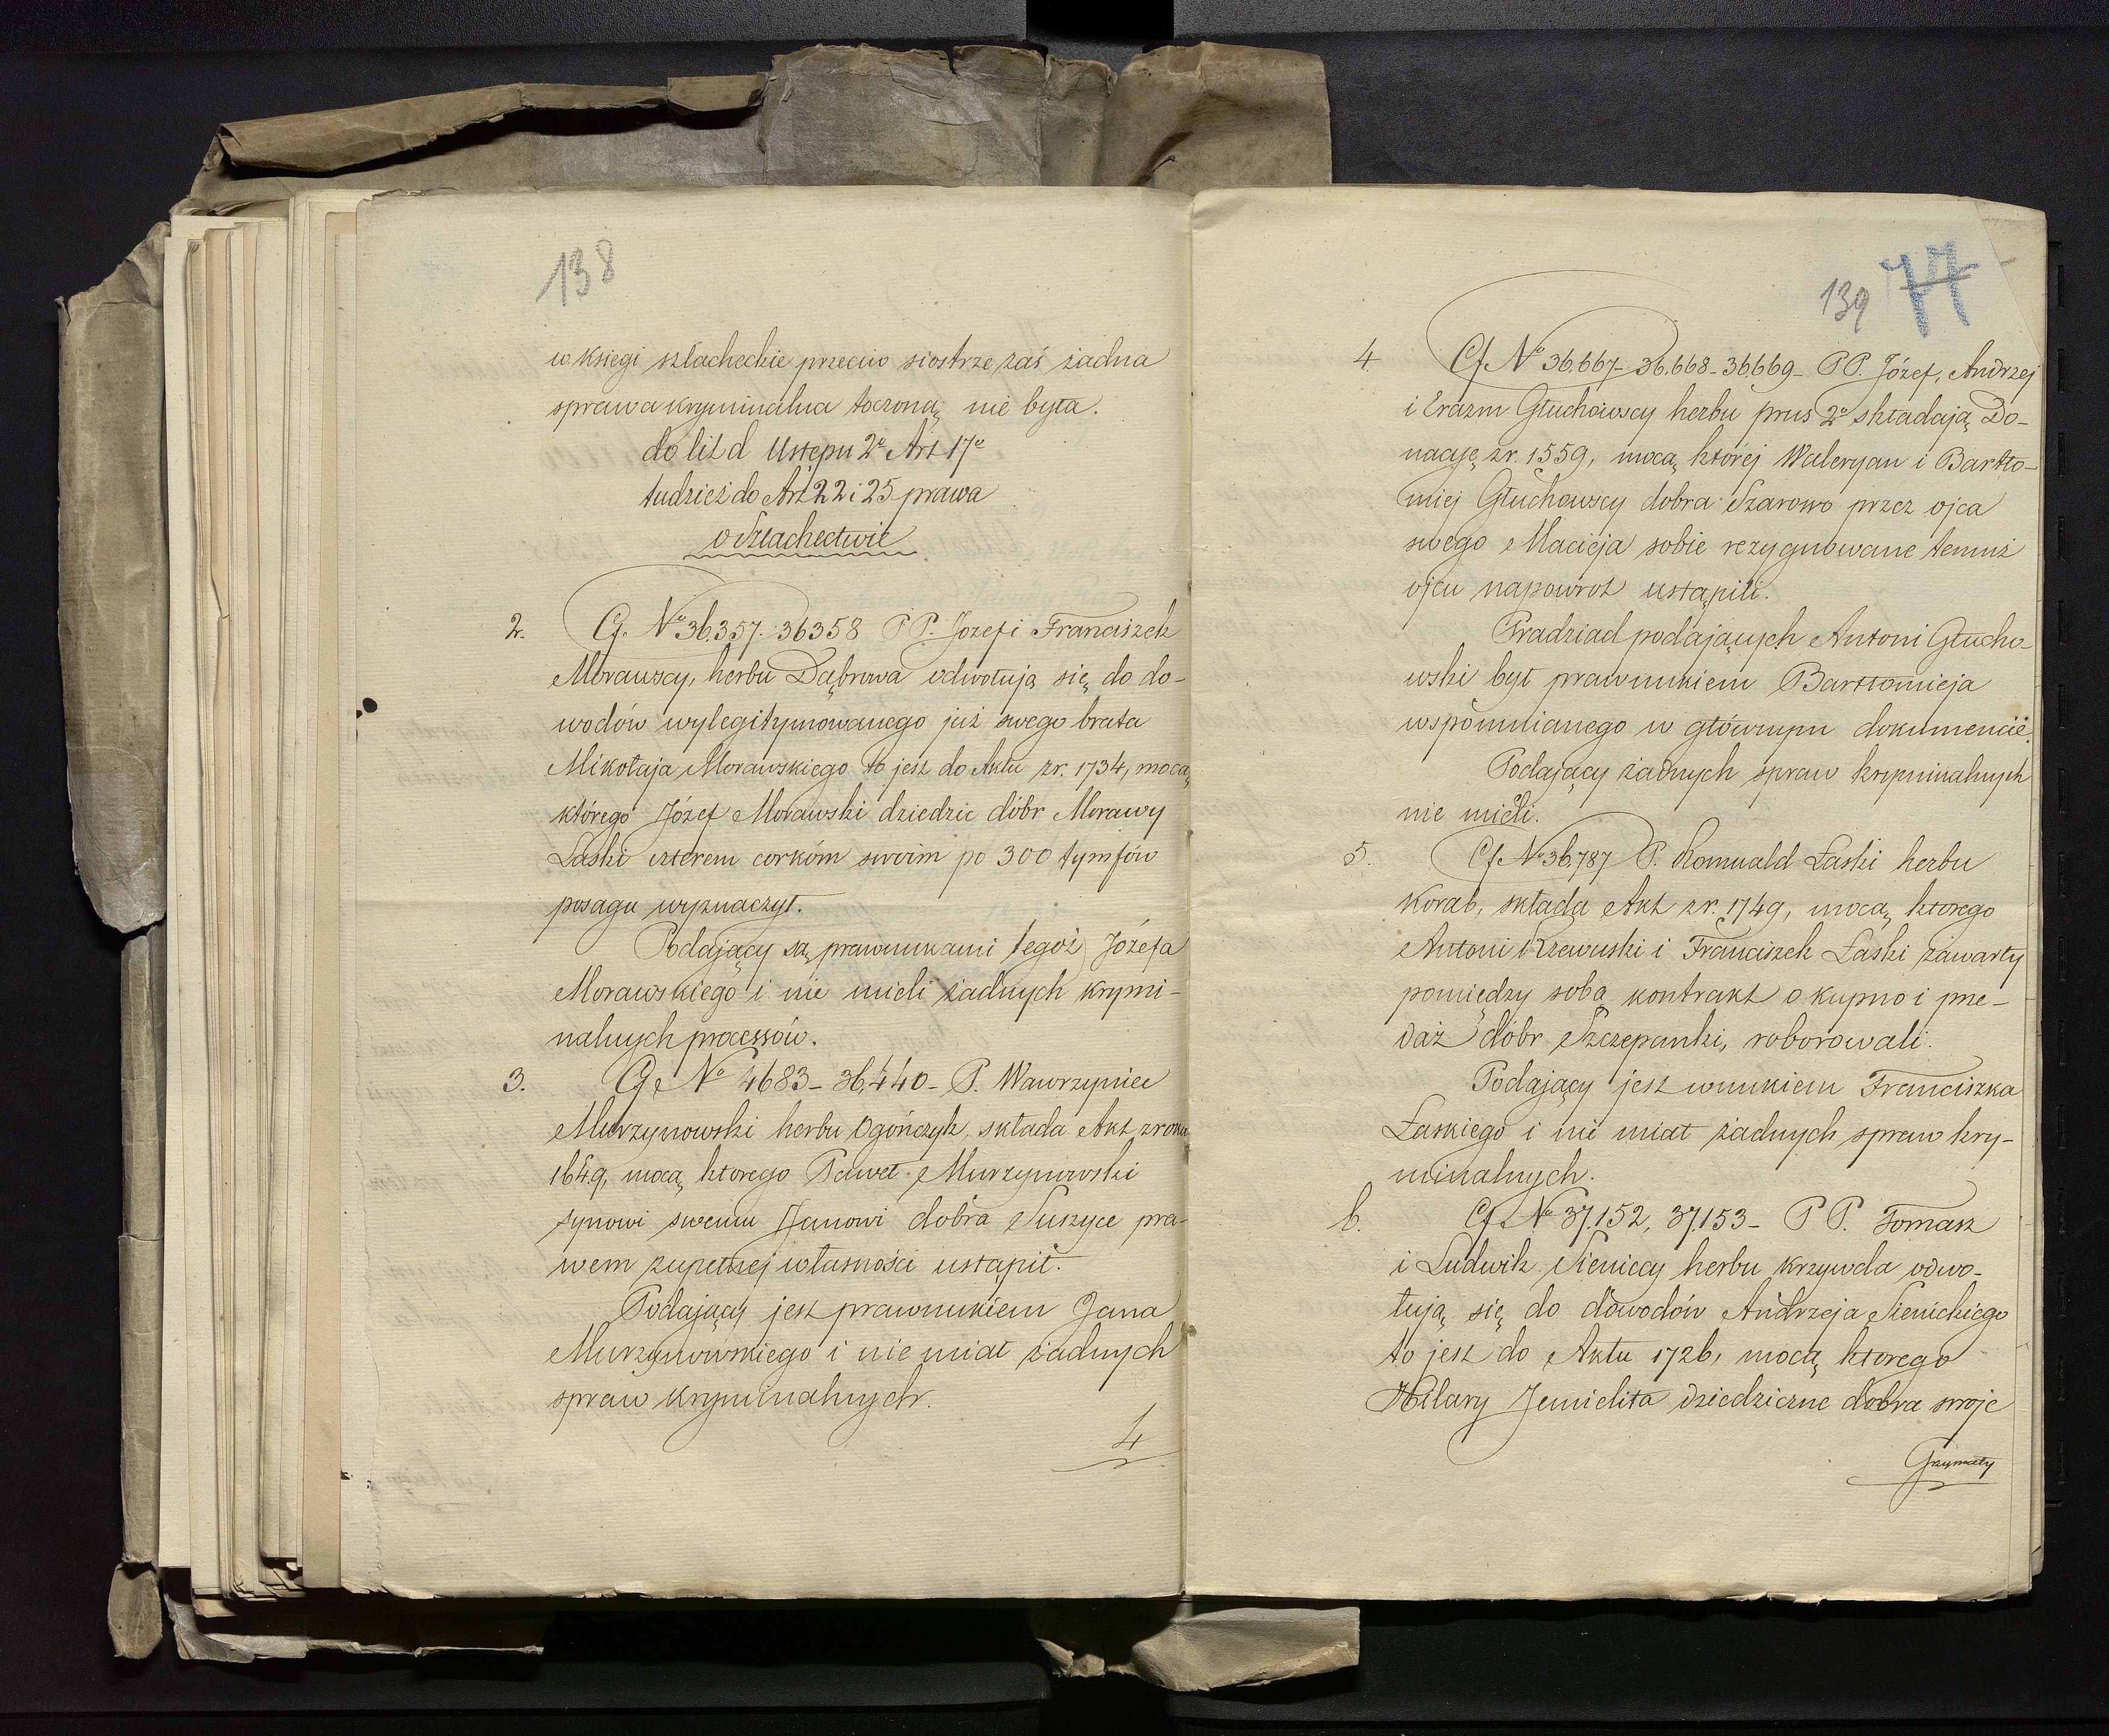 138
w księgi szlacheckie przeciw siostrze zaś żadna
sprawa kryminalna toczoną nie była.
do lit d Ustępu 2º Art 17º
tudzież do Art 22 i 25 prawa
o Szlachectwie
2. Cf. Nº 36.357. 36358 P P. Józef i Franciszek
Morawscy, herbu Dąbrowa odwołują się do do-
wodów wylegitymowanego już swego brata
Mikołaja Morawskiego to jest do Aktu zr. 1734, mocą
którego Józef Morawski dziedzic dóbr Morawy
Laski czterem corkóm swoim po 300 tymfów
posagu wyznaczył.
Podający są prawnukami tegoż Józefa
Morawskiego i nie mieli żadnych krymi-
nalnych processów.
3. Cf. Nº 4683 - 36,440 - P. Wawrzyniec
Murzynowski herbu Ogończyk, składa Akt z roku
1649, mocą ktorego Paweł Murzynowski
synowi swemu Janowi dobra Suszyce pra-
wem zupełnej własności ustąpił.
Podający jest prawnukiem Jana
Murzynowskiego i nie miał żadnych
spraw kryminalnych.
4
139 77
4. Cf Nº 36.667 - 36.668 - 36.669 - P P. Józef, Andrzej
i Erazm Głuchowscy herbu prus 2º składają Do-
nacyę zr. 1559, mocą której Waleryan i Bartło-
miej Głuchowscy dobra Szarowo przez ojca
swego Macieja sobie rezygnowane temuż
ojcu napowrot ustąpili.
Pradziad podających Antoni Głucho-
wski był prawnukiem Bartłomieja
wspomnianego w głównym dokumencie.
Podający żadnych spraw kryminalnych
nie mieli.
5. Cf Nº 36.787 P. Romuald Łaski herbu
Korab, składa Akt zr. 1749, mocą ktorego
Antoni Rzewuski i Franciszek Łaski zawarty
pomiędzy sobą kontrakt o kupno i prze-
daż dóbr Szczepanki, roborowali.
Podający jest wnukiem Franciszka
Łaskiego i nie miał żadnych spraw kry-
minalnych.
6. Cf. Nº 37.152, 37.153 - P P. Tomasz
i Ludwik Sieniccy herbu Krzywda odwo-
łują się do dowodów Andrzeja Sienickiego
to jest do Aktu 1726, mocą ktorego
Hilary Jemielita dziedziczne dobra swoje
Grzymały